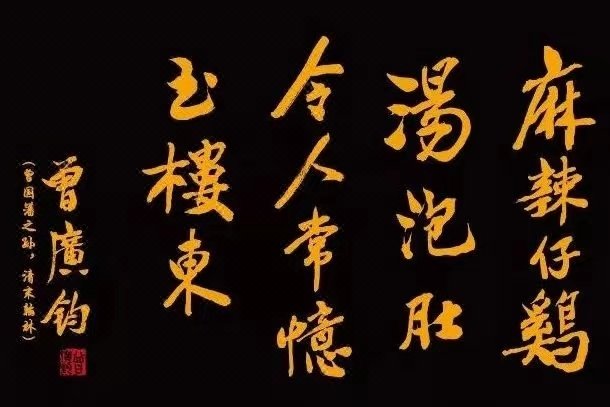 麻辣仔鷄
湯泡肚
令人常憶
玉樓東
曾廣鈞
(曾国藩之孙，清末翰林)